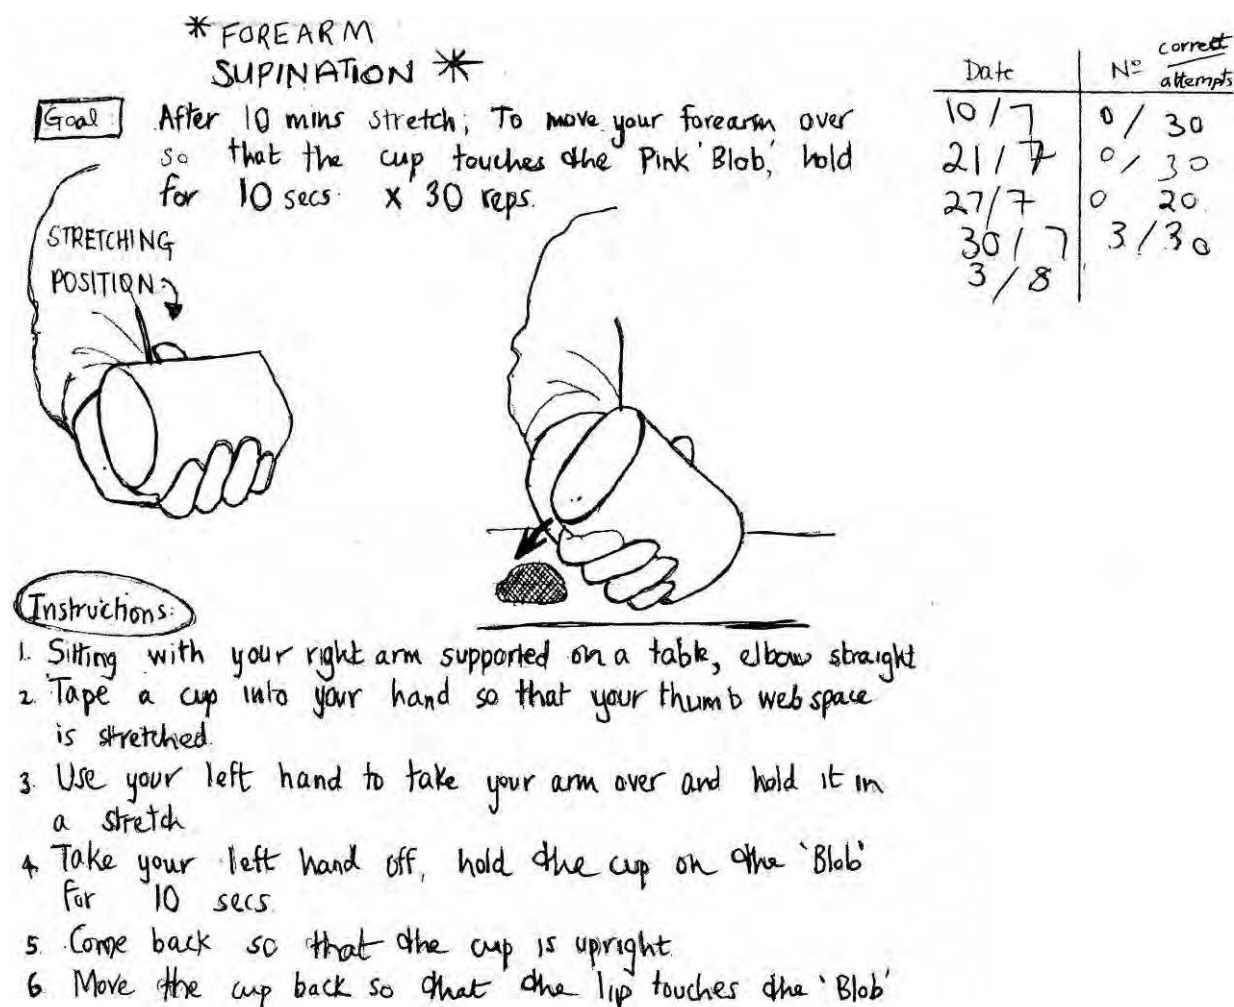 * FOREARM
SUPINATION *
Goal: After 10 mins stretch; To move your forearm over
so that the cup touches the Pink 'Blob', hold
for 10 secs. x 30 reps.
STRETCHING
POSITION
Date Nº correct/attempts
10/7 0/30
21/7 0/30
27/7 0 20
30/7 3/30
3/8
Instructions:
1. Sitting with your right arm supported on a table, elbow straight
2. Tape a cup into your hand so that your thumb web space
is stretched.
3. Use your left hand to take your arm over and hold it in
a stretch
4. Take your left hand off, hold the cup on the 'Blob'
for 10 secs.
5. Come back so that the cup is upright.
6. Move the cup back so that the lip touches the 'Blob'